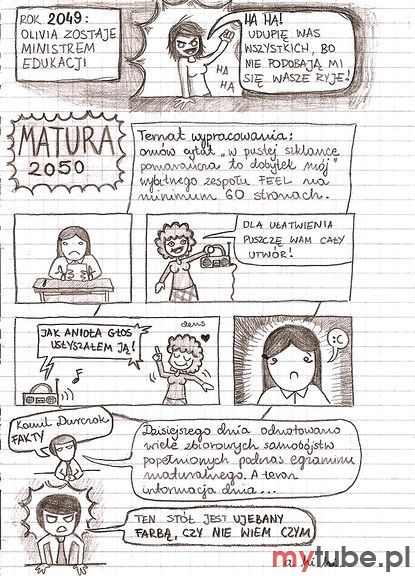 ROK 2049:
OLIVIA ZOSTAJE
MINISTREM
EDUKACJI
HA HA!
UDUPIĘ WAS
WSZYSTKICH, BO
NIE PODOBAJĄ MI
SIĘ WASZE RYJE!
HA
HA
MATURA
2050
Temat wypracowania:
omów cytat „w pustej szklance
pomarańcza to dobytek mój"
wybitnego zespołu FEEL na
minimum 60 stronach.
DLA UŁATWIENIA
PUSZCZĘ WAM CAŁY
UTWÓR!
JAK ANIOŁA GŁOS
USŁYSZAŁEM JĄ!
dens
:C
Kamil Durczok
FAKTY
Dzisiejszego dnia odnotowano
wiele zbiorowych samobójstw
popełnionych podczas egzaminu
maturalnego. A teraz
informacja dnia...
TEN STÓŁ JEST UJEBANY
FARBĄ, CZY NIE WIEM CZYM
mytube.pl